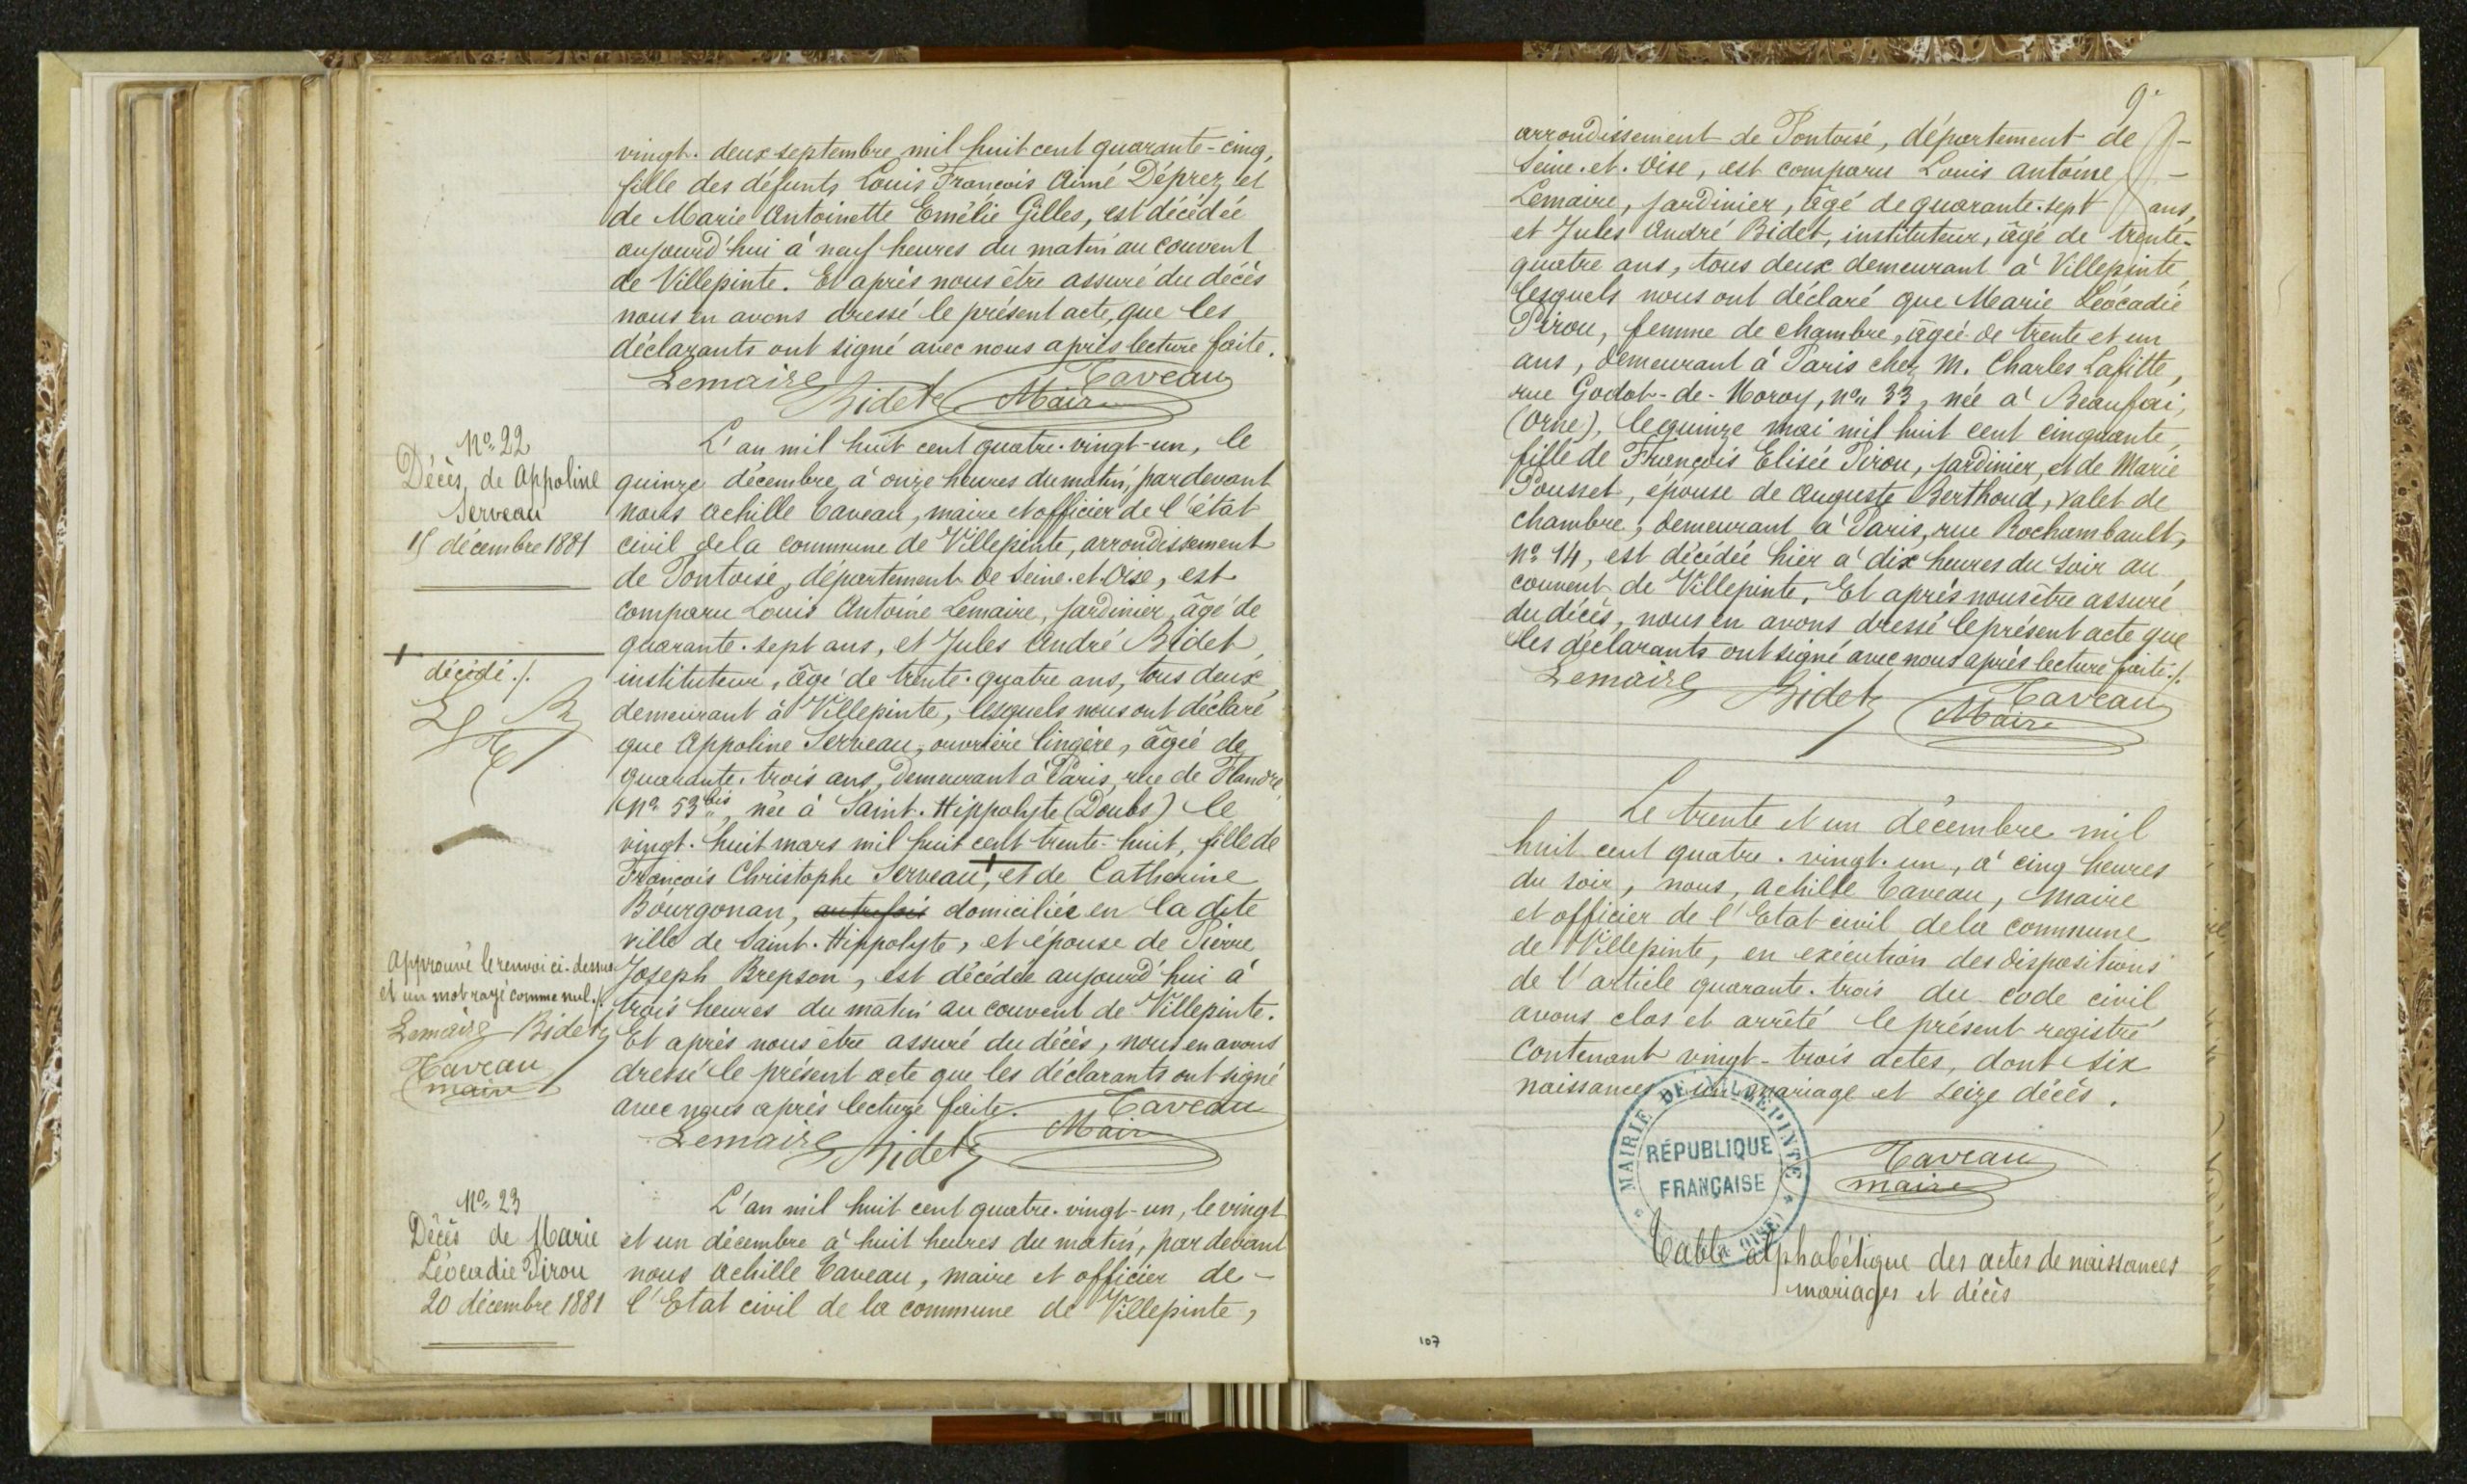 vingt-deux septembre mil huit cent quarante-cinq,
fille des défunts Louis François Aimé Déprez et
de Marie Antoinette Emélie Gilles, est décédée
aujourd'hui à neuf heures du matin au couvent
de Villepinte. Et après nous être assuré du décès
nous en avons dressé le présent acte, que les
déclarants ont signé avec nous après lecture faite.
Lemaire Bidet Taveau
Maire
No 22
Décès de Appoline
Serveau
15 décembre 1881
L'an mil huit cent quatre-vingt-un, le
quinze décembre, à onze heures du matin, par devant
nous Achille Taveau, maire et officier de l'état
civil de la commune de Villepinte, arrondissement
de Pontoise, département de Seine-et-Oise, est
comparu Louis Antoine Lemaire, jardinier, âgé de
quarante-sept ans, et Jules André Bidet,
instituteur, âgé de trente-quatre ans, tous deux
demeurant à Villepinte, lesquels nous ont déclaré
que Appoline Serveau, ouvrière lingère, âgée de
quarante-trois ans, demeurant à Paris, rue de Flandre
No 53 bis, née à Saint-Hippolyte (Doubs) le
vingt-huit mars mil huit cent trente-huit, fille de
François Christophe Serveau, et de Catherine
Bourgonan, autrefois domiciliée en la dite
ville de Saint-Hippolyte, et épouse de Pierre
Joseph Brepson, est décédée aujourd'hui à
trois heures du matin au couvent de Villepinte.
Et après nous être assuré du décès, nous en avons
dressé le présent acte que les déclarants ont signé
avec nous après lecture faite.
Lemaire Bidet Taveau
Maire
décédé ./.
L B
T
Approuvé le renvoi ci-dessus
et un mot rayé comme nul ./.
Lemaire Bidet
Taveau
maire
No 23
Décès de Marie
Léocadie Pirou
20 décembre 1881
L'an mil huit cent quatre-vingt-un, le vingt
et un décembre à huit heures du matin, par devant
nous Achille Taveau, maire et officier de
l'Etat civil de la commune de Villepinte,
9
arrondissement de Pontoise, département de
Seine-et-Oise, est comparu Louis Antoine
Lemaire, jardinier, âgé de quarante-sept ans,
et Jules André Bidet, instituteur, âgé de trente-
quatre ans, tous deux demeurant à Villepinte,
lesquels nous ont déclaré que Marie Léocadie
Pirou, femme de chambre, âgée de trente et un
ans, demeurant à Paris chez M. Charles Lafitte,
rue Godot-de-Moroy, no 33, née à Beaufai,
(Orne), le quinze mai mil huit cent cinquante,
fille de François Elisée Pirou, jardinier, et de Marie
Pousset, épouse de Auguste Berthoud, valet de
chambre, demeurant à Paris, rue Rochambault,
No 14, est décédée hier à dix heures du soir au
couvent de Villepinte. Et après nous être assuré
du décès, nous en avons dressé le présent acte que
les déclarants ont signé avec nous après lecture faite ./.
Lemaire Bidet Taveau
Maire
Le trente et un décembre mil
huit cent quatre-vingt-un, à cinq heures
du soir, nous, Achille Taveau, Maire
et officier de l'Etat civil de la commune
de Villepinte, en exécution des dispositions
de l'article quarante-trois du code civil
avons clos et arrêté le présent registre
contenant vingt-trois actes, dont six
naissances, un mariage et seize décès.
MAIRIE DE VILLEPINTE
RÉPUBLIQUE
FRANÇAISE
Taveau
maire
Table alphabétique des actes de naissances
mariages et décès
107